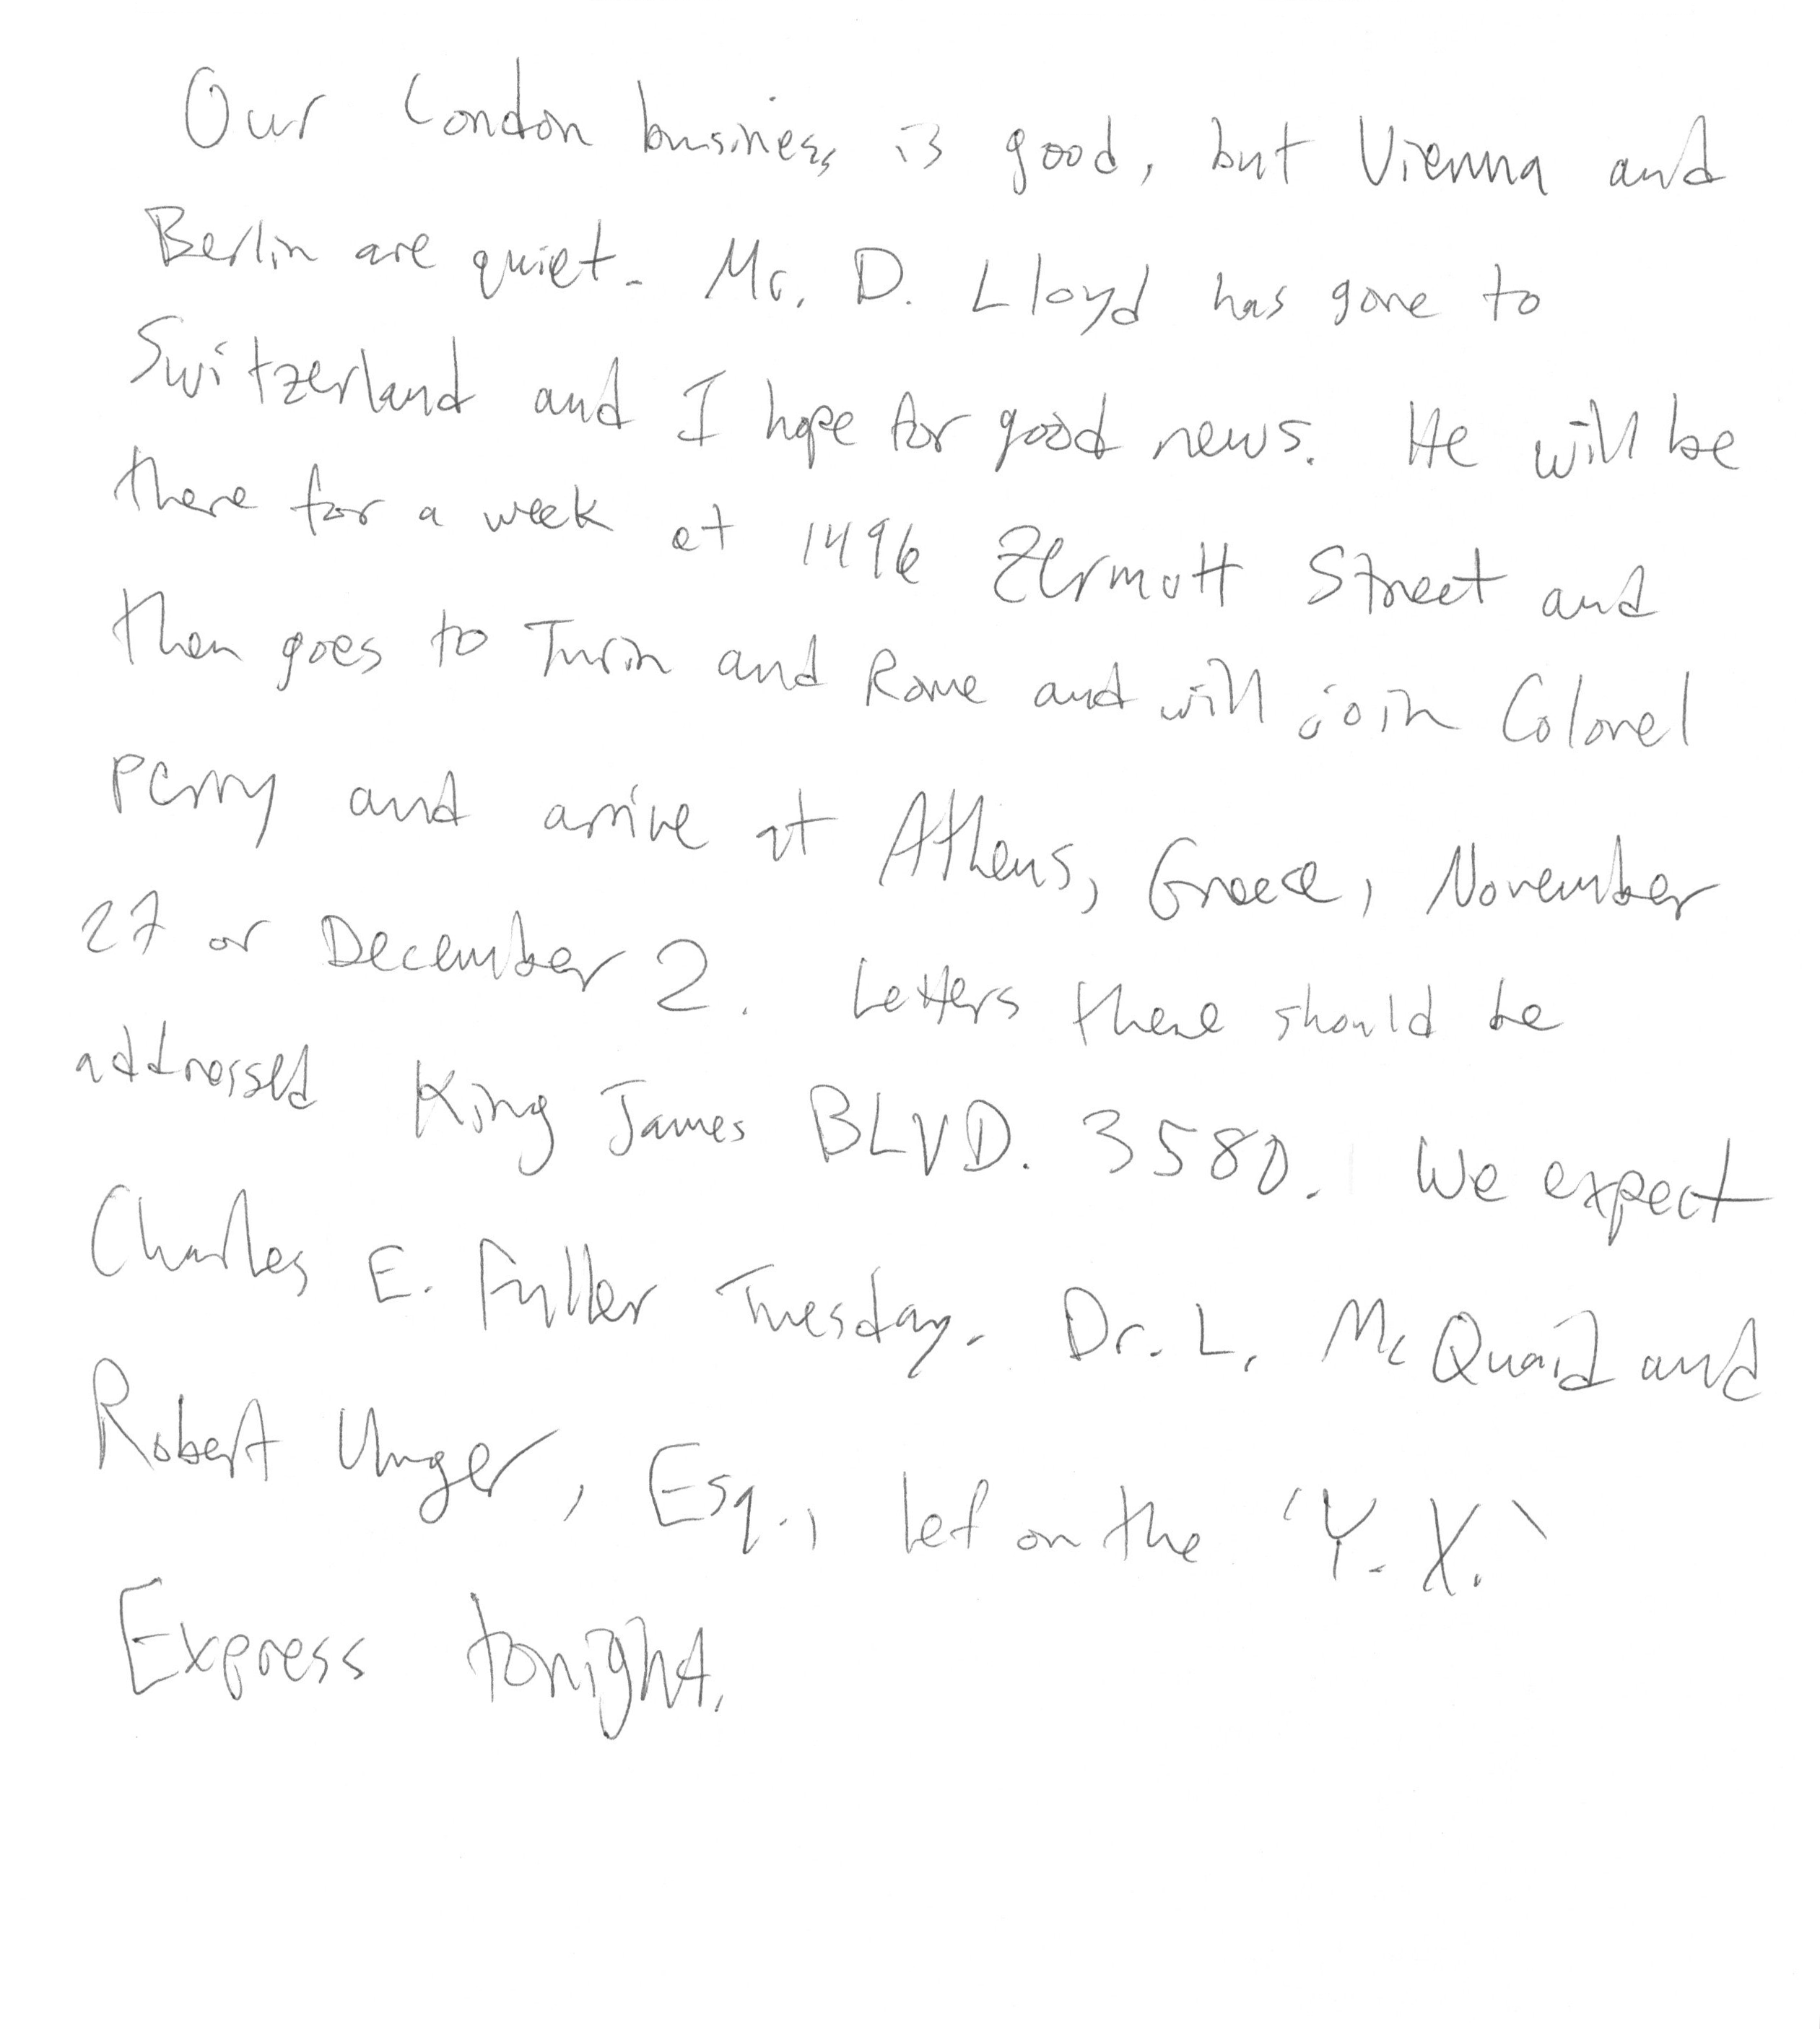 Our London business is good, but Vienna and
Berlin are quiet. Mr. D. Lloyd has gone to
Switzerland and I hope for good news. He will be
there for a week at 1496 Zermott Street and
then goes to Turin and Rome and will join Colonel
Perry and arrive at Athens, Greece, November
27 or December 2. Letters there should be
addressed King James BLVD. 3580. We expect
Charles E. Fuller Tuesday. Dr. L. McQuaid and
Robert Unger, Esq., lef on the 'Y.X.'
Express tonight.